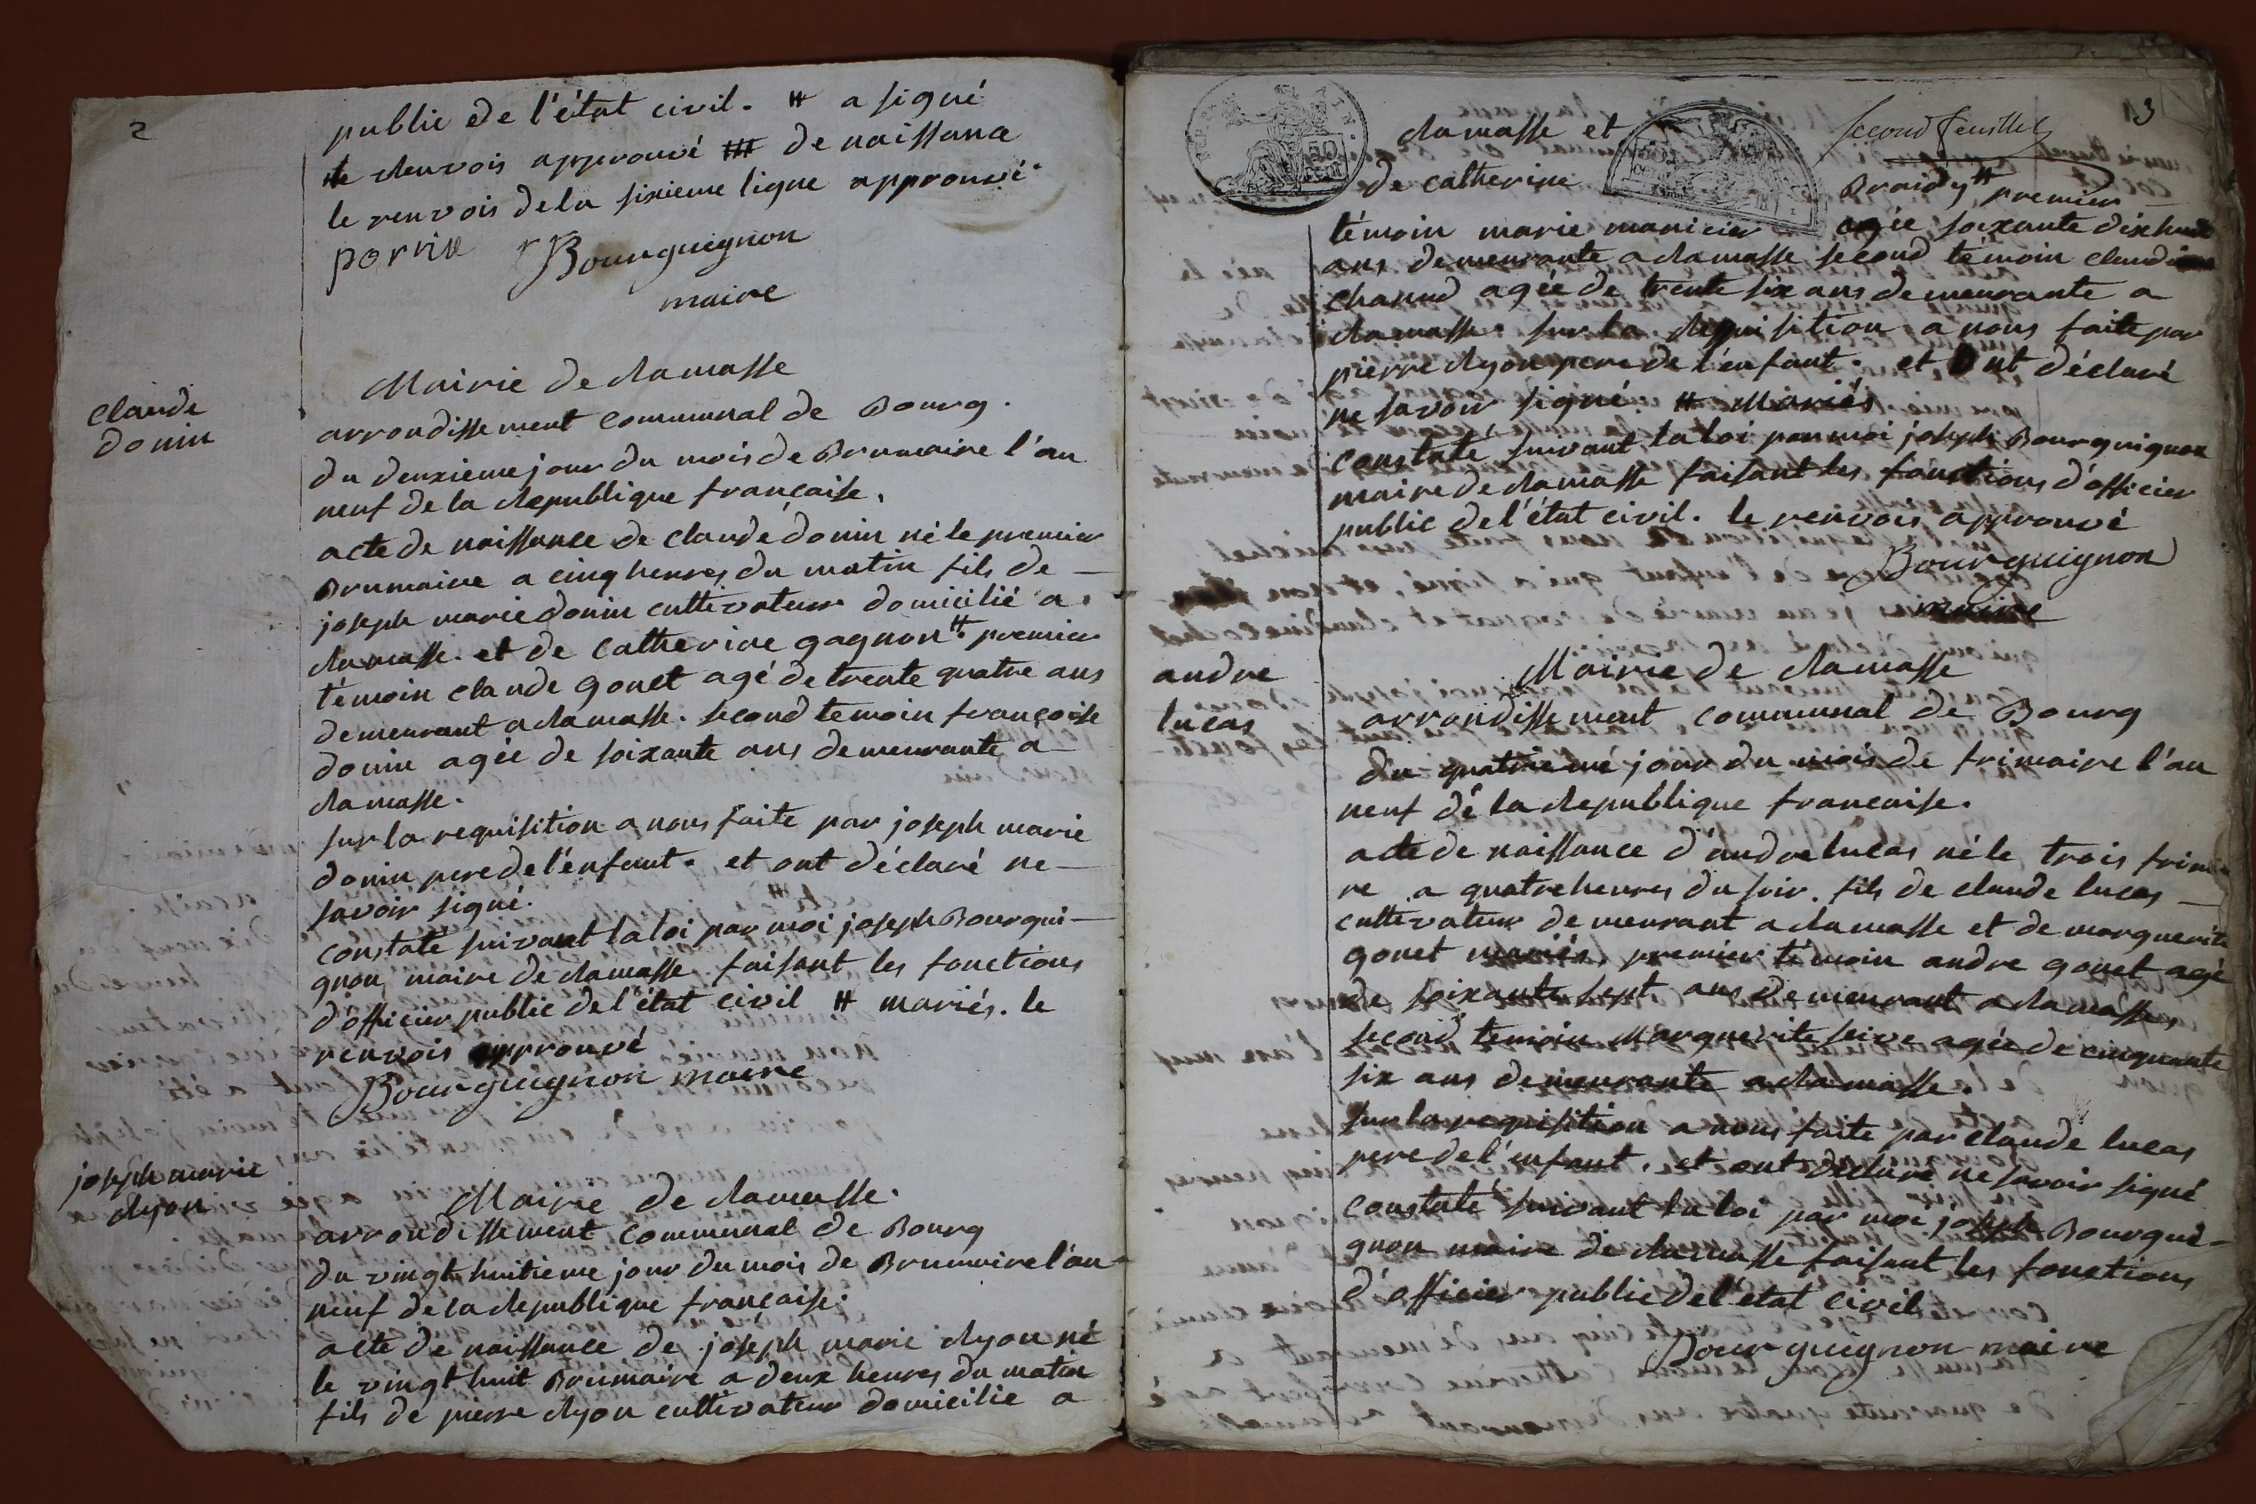 2
public de l'état civil. # a signé
le renvois approuvé ### de naissance
le renvois de la sixieme ligne approuvé.
perrin Bourguignon
maire
claude
donin
Mairie de ramasse
arrondissement communal de Bourg.
du deuxieme jour du mois de Brumaire l'an
neuf de la Republique française.
acte de naissance de claude donin né le premier
Brumaire a cinq heures du matin fils de
joseph marie donin cultivateur domicilié a
ramasse. et de catherine gagnon # premier
témoin claude gouet agé de trente quatre ans
demeurant a ramasse. second temoin françoise
donin agée de soixante ans demeurante a
ramasse.
sur la requisition a nous faite par joseph marie
donin pere de l'enfant. et ont déclaré ne
savoir signé.
constaté suivant la loi par moi joseph Bourgui-
gnon maire de ramasse faisant les fonctions
d'officier public de l'état civil # mariés. le
renvois approuvé
Bourguignon maire
joseph marie
ryon
Mairie de ramasse.
arrondissement communal de Bourg
du vingt huitieme jour du mois de Brumaire l'an
neuf de la Republique française.
acte de naissance de joseph marie ryon né
le vingt huit Brumaire a deux heures du matin
fils de pierre ryon cultivateur domicilié a
3
second feuillet
ramasse et
de catherine Braidy # premier
témoin marie manicier agée soixante dix huit
ans demeurante a ramasse second témoin claudine
chanud agée de trente six ans demeurante a
ramasse. sur la requisition a nous faite par
pierre ryon pere de l'enfant. et ont déclaré
ne savoir signé. # Mariés
constaté suivant la loi par moi joseph Bourguignon
maire de ramasse faisant les fonctions d'officier
public de l'état civil. le renvois approuvé
Bourguignon
maire
andre
lucas
Mairie de ramasse
arrondissement communal de Bourg
du quatrieme jour du mois de frimaire l'an
neuf de la Republique française.
acte de naissance d'andre lucas né le trois frimai
re a quatre heures du soir. fils de claude lucas
cultivateur demeurant a ramasse et de marguerite
gouet mariés. premier témoin andre gouet agé
de soixante sept ans demeurant a ramasse
second temoin Marguerite seive agée de cinquante
six ans demeurante a ramasse.
sur la requisition a nous faite par claude lucas
pere de l'enfant. et ont declaré ne savoir signé
constaté suivant la loi par moi joseph Bourgui-
gnon maire de ramasse faisant les fonctions
d'officier public de l'état civil
Bourguignon maire